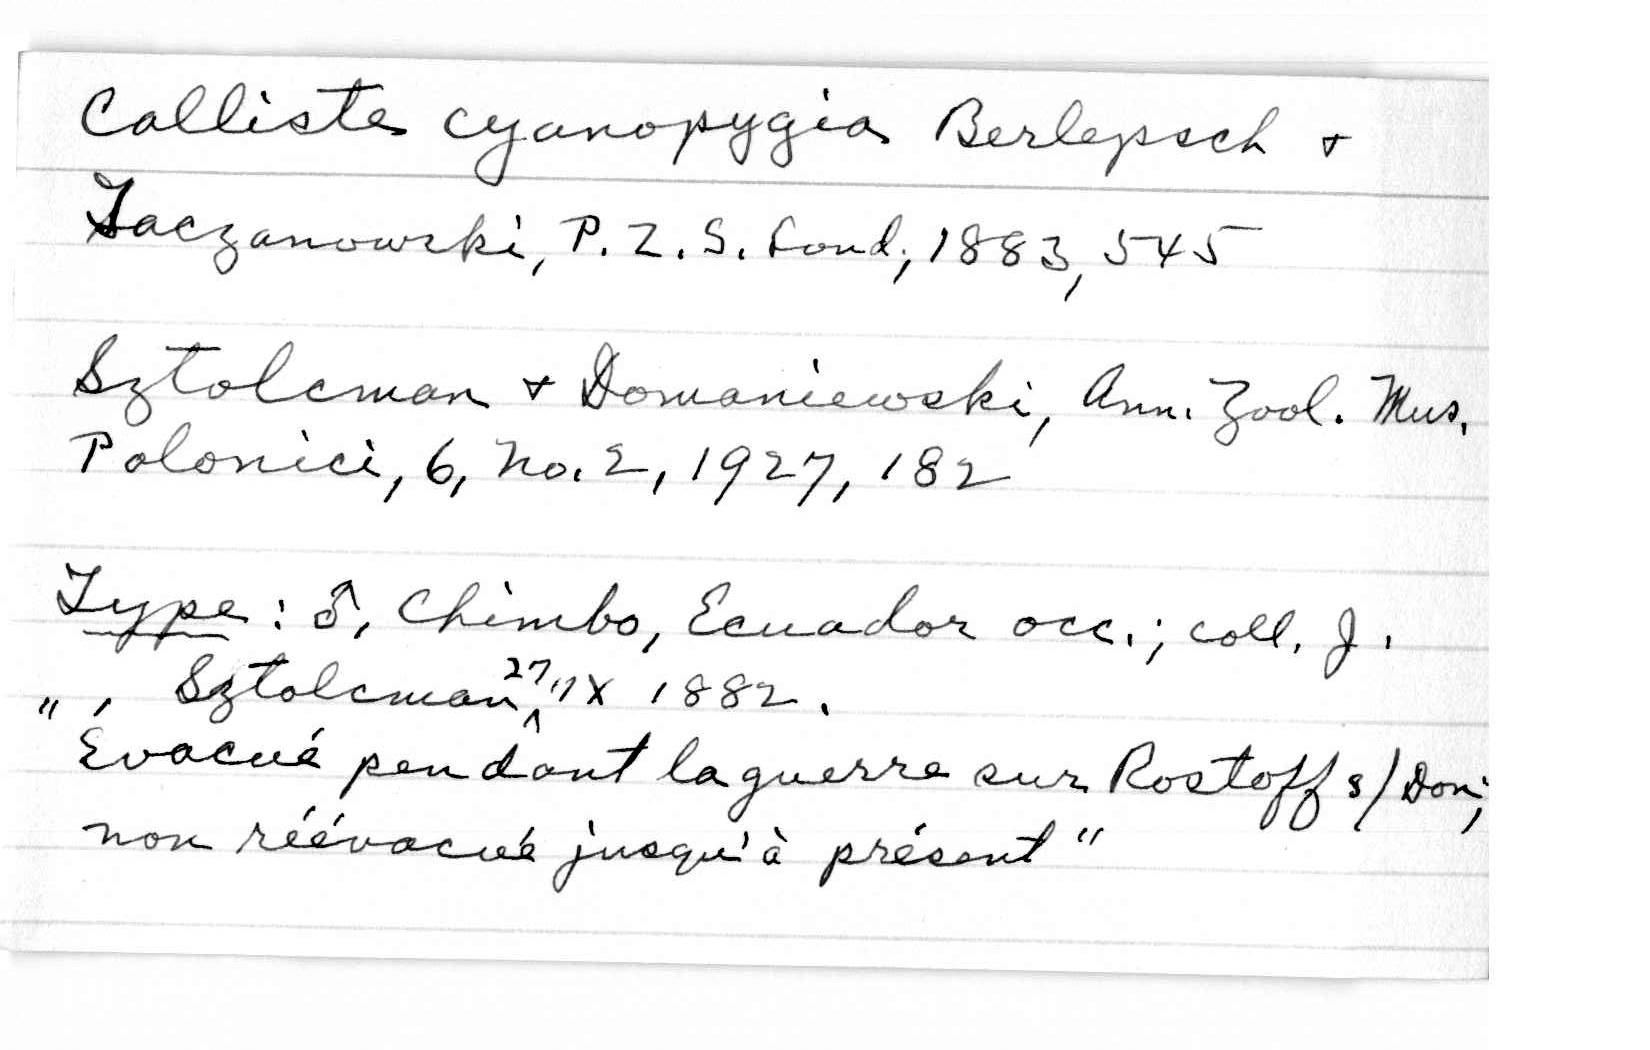 Calliste cyanopygia Berlepsch &
Taczanowski, P. Z. S. Lond., 1883, 545
Sztolcman & Domaniewski, Ann. Zool. Mus.
Polonici, 6, No. 2, 1927, 182
Type: ♂, Chimbo, Ecuador occ.; coll. J.
Sztolcman, 27, IX 1882.
"Évacué pendant la guerre sur Rostoff s/Don;
non réévacué jusqu'à présent"